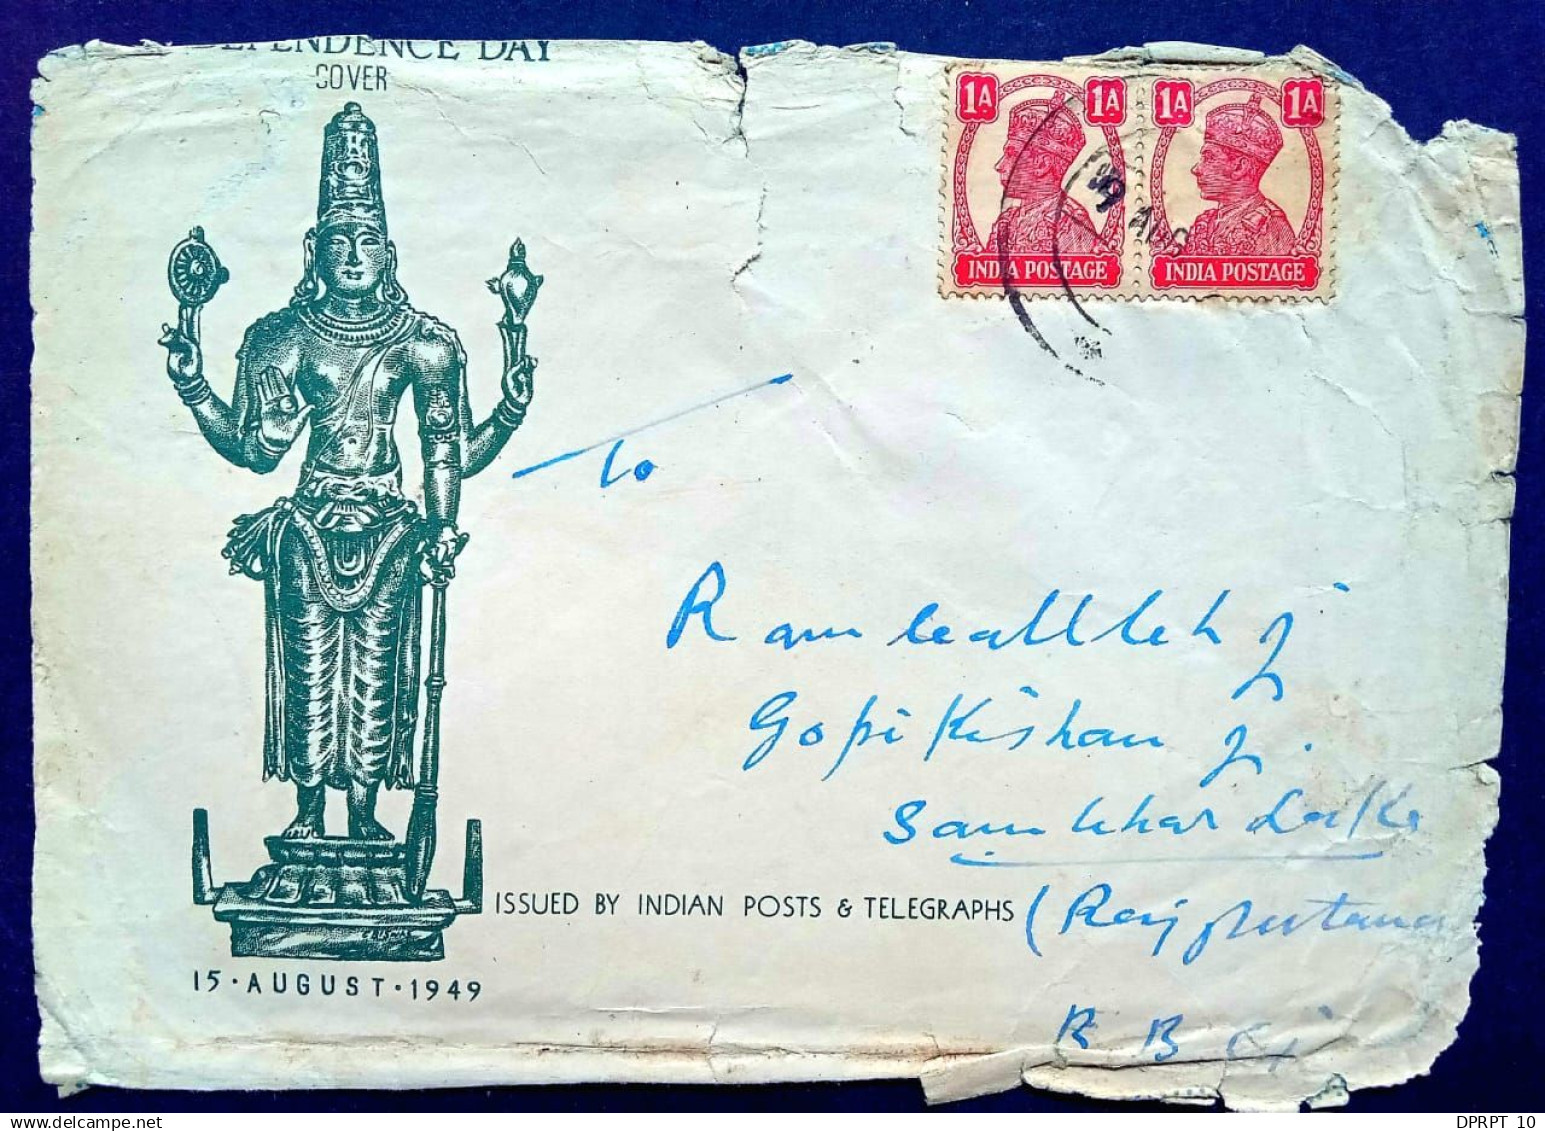 EPENDENCE DAY
COVER
1A 1A 1A 1A
9 AUG
INDIA POSTAGE INDIA POSTAGE
To
Gopi Kishan Ji.
Sambhar Lake
ISSUED BY INDIAN POSTS & TELEGRAPHS
(Rajputana
15 · AUGUST · 1949
B B
DPRPT 10